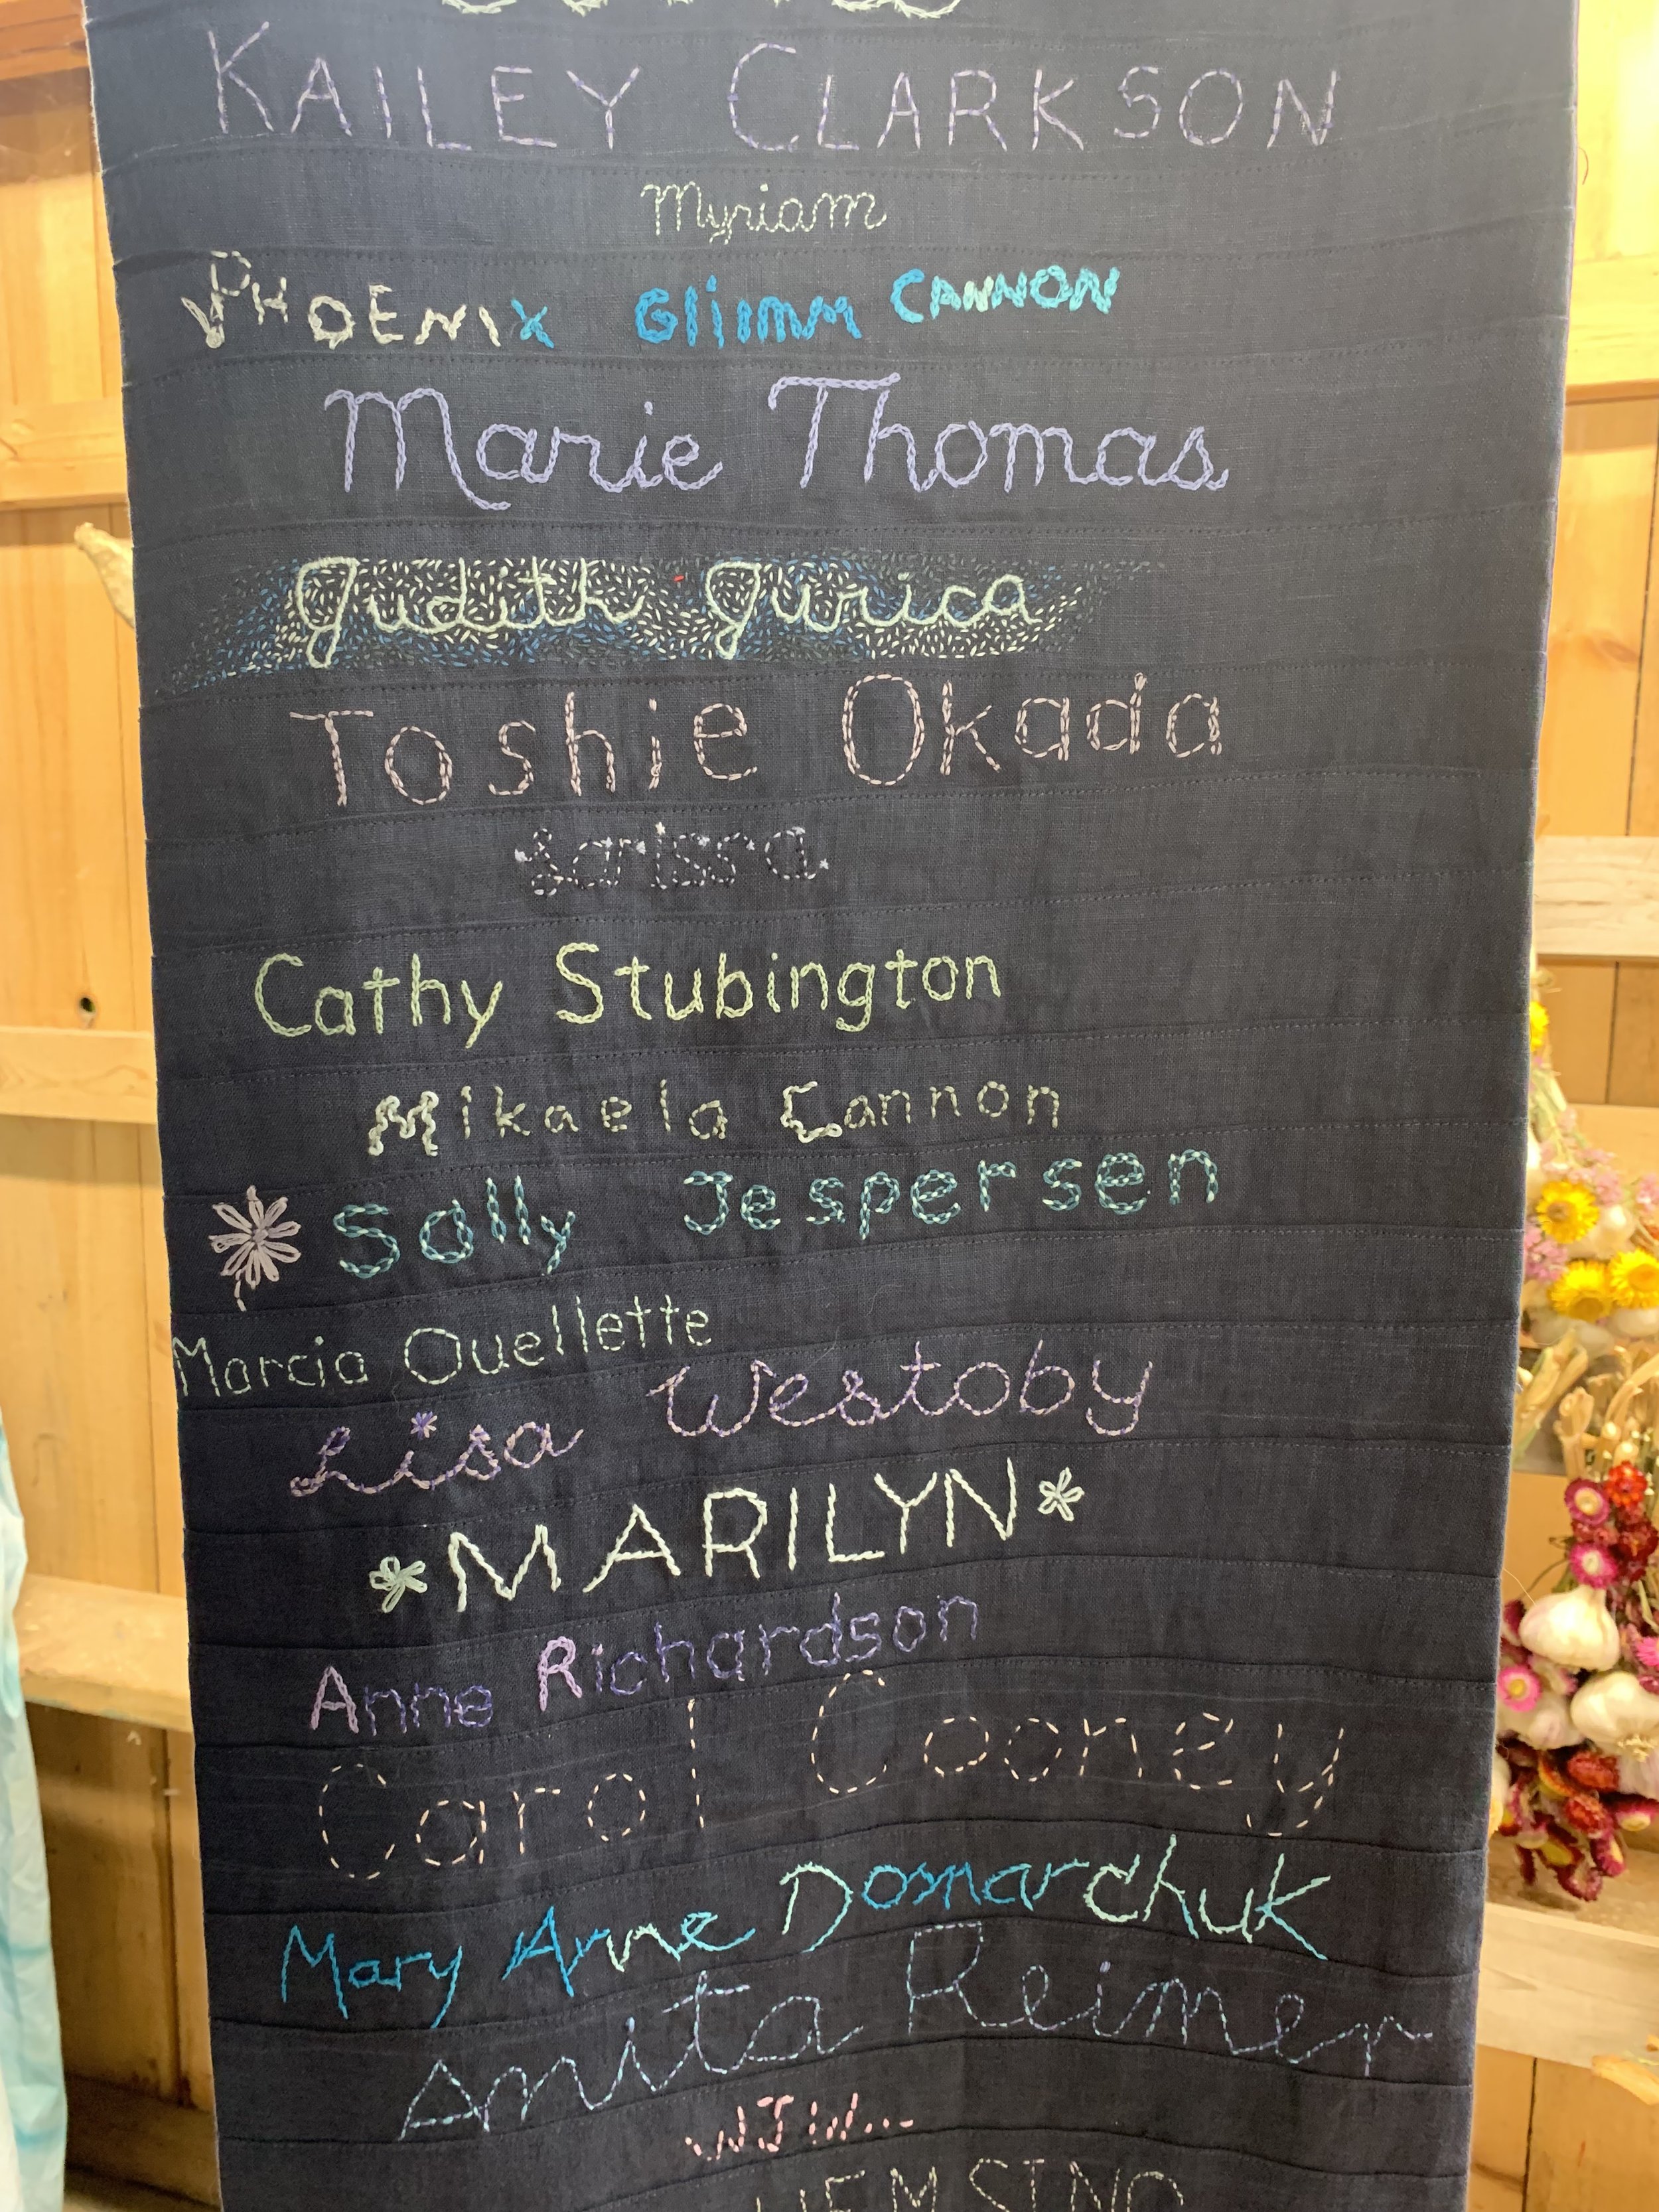 KAILEY CLARKSON
Myriam
PHOENIX Glimm CANNON
Marie Thomas
Judith Jurica
Toshie Okada
Larissa
Cathy Stubington
Mikaela Cannon
Sally Jespersen
Marcia Ouellette
Lisa Westoby
*MARILYN*
Anne Richardson
Carol Cooney
Mary Anne Domarchuk
Anita Reimer